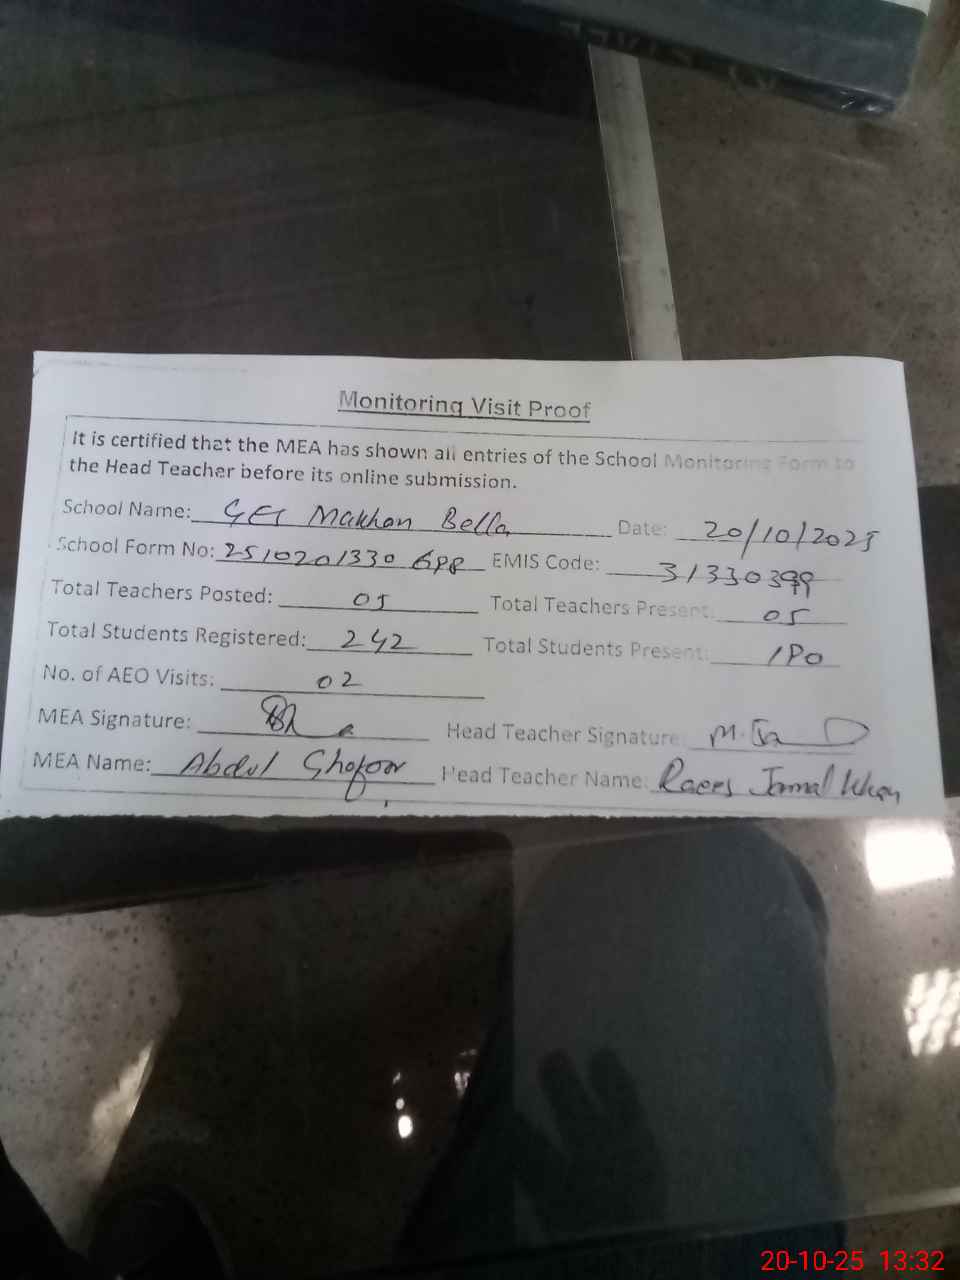 Monitoring Visit Proof
It is certified that the MEA has shown all entries of the School Monitoring Form to
the Head Teacher before its online submission.
School Name: GES Makhan Bella Date: 20/10/2025
School Form No: 2510201330 698 EMIS Code: 31330399
Total Teachers Posted: 05 Total Teachers Present: 05
Total Students Registered: 242 Total Students Present: 180
No. of AEO Visits: 02
MEA Signature: Head Teacher Signature:
MEA Name: Abdul Ghafoor Head Teacher Name: Raees Jamal Khan
20-10-25 13:32